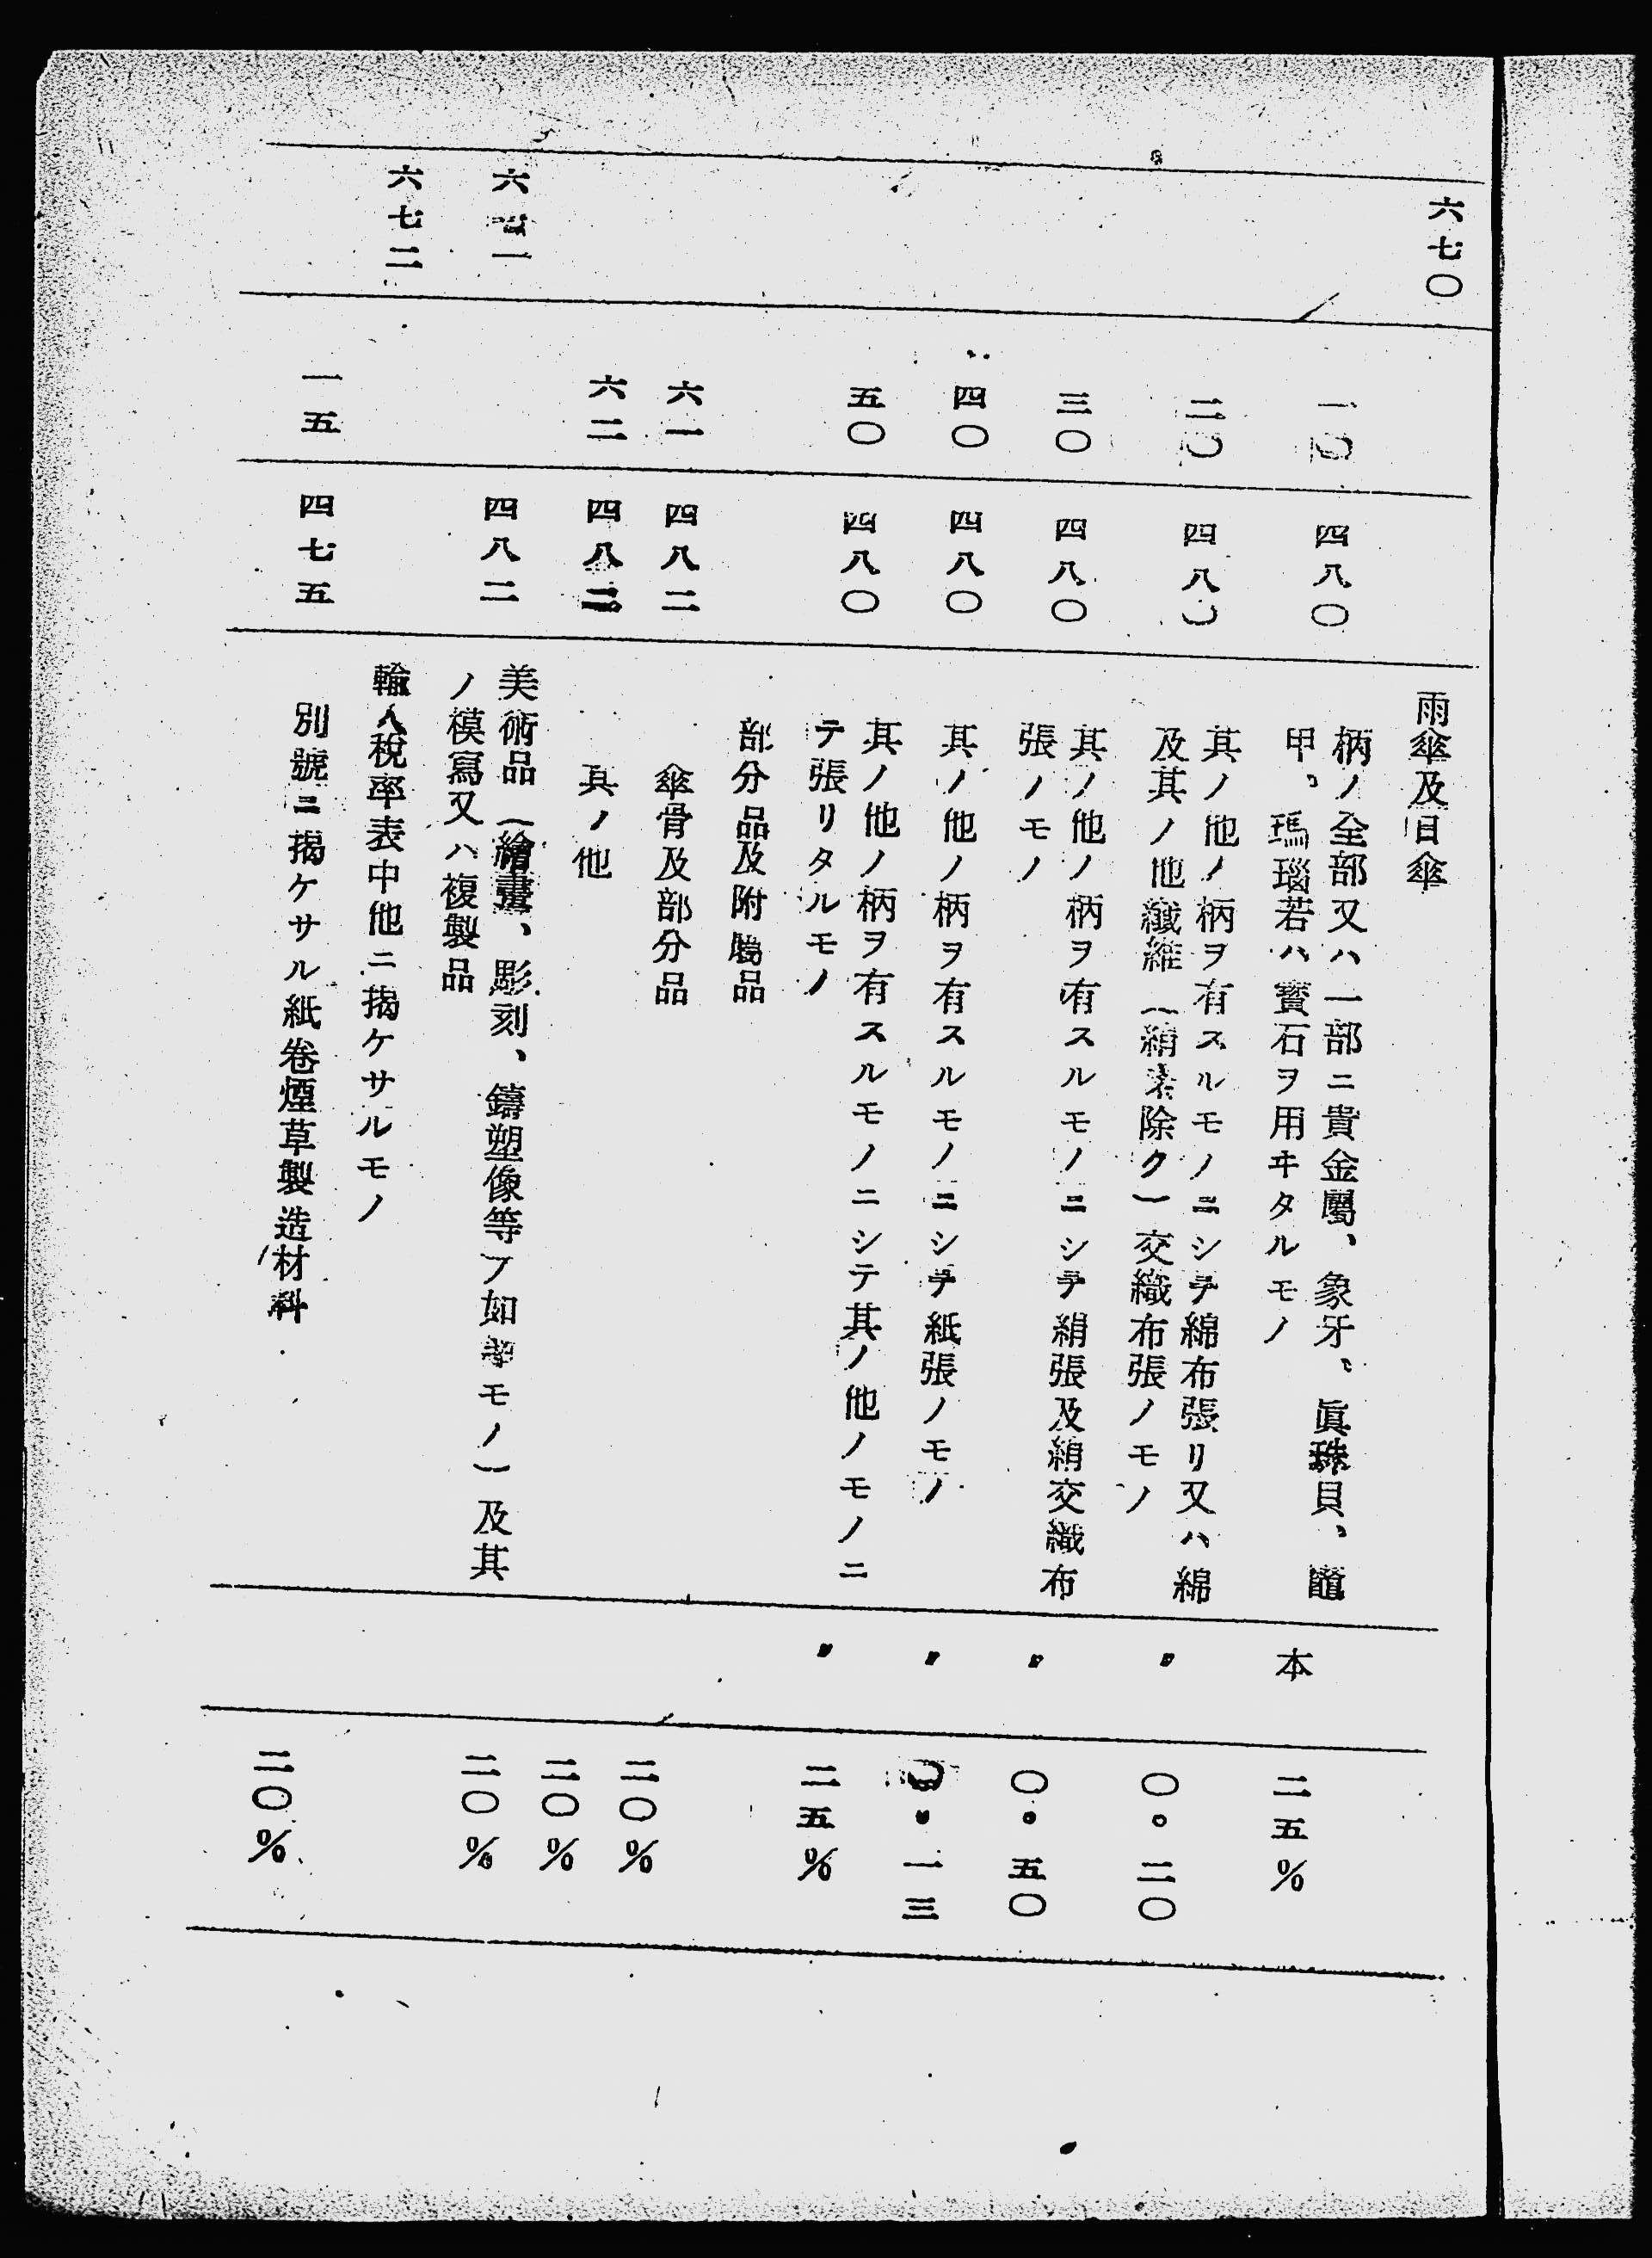 六七〇
雨傘及日傘
一〇
四八〇
柄ノ全部又ハ一部ニ貴金屬、象牙、眞珠貝、鼈
甲、瑪瑙若ハ寳石ヲ用ヰタルモノ
本
二五%
二〇
四八〇
其ノ他ノ柄ヲ有スルモノニシテ綿布張リ又ハ綿
及其ノ他纖維(絹ヲ除ク)交織布張ノモノ
〃
〇。二〇
三〇
四八〇
其ノ他ノ柄ヲ有スルモノニシテ絹張及絹交織布
張ノモノ
〃
〇。五〇
四〇
四八〇
其ノ他ノ柄ヲ有スルモノニシテ紙張ノモノ
〃
〇。一三
五〇
四八〇
其ノ他ノ柄ヲ有スルモノニシテ其ノ他ノモノニ
テ張リタルモノ
〃
二五%
部分品及附屬品
六一
四八二
傘骨及部分品
二〇%
六二
四八二
其ノ他
二〇%
六七一
四八二
美術品(繪畫、彫刻、鑄塑像等ノ如キモノ)及其
ノ模寫又ハ複製品
二〇%
六七二
輸入稅率表中他ニ揭ケサルモノ
一五
四七五
別號ニ揭ケサル紙卷煙草製造材料
二〇%